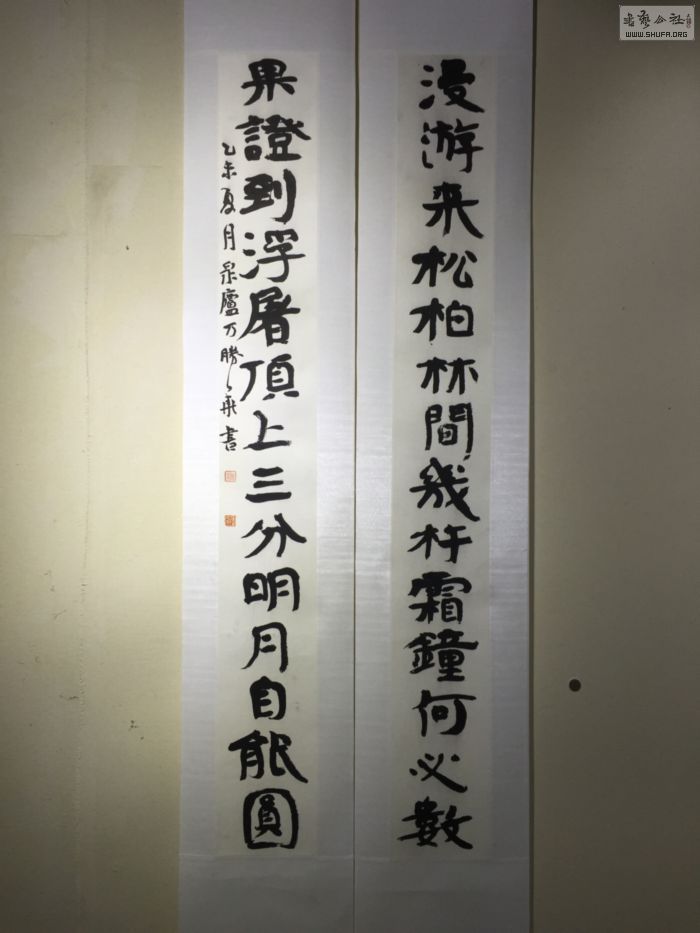 漫游来松柏林間幾杵霜鐘何必數
果證到浮屠頂上三分明月自能圓
乙未夏月泉廬万勝葉書
WWW.SHUFA.ORG